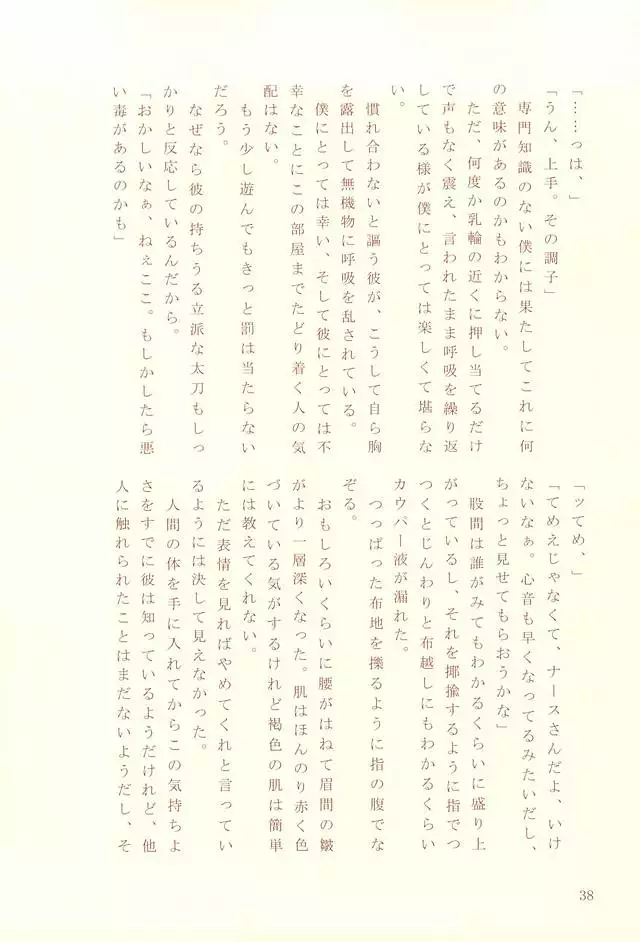 「……っは、」
「うん、上手。その調子」
専門知識のない僕には果たしてこれに何
の意味があるのかもわからない。
ただ、何度か乳輪の近くに押し当てるだけ
で声もなく震え、言われたまま呼吸を繰り返
している様が僕にとっては楽しくて堪らな
い。
慣れ合わないと謳う彼が、こうして自ら胸
を露出して無機物に呼吸を乱されている。
僕にとっては幸い、そして彼にとっては不
幸なことにこの部屋までたどり着く人の気
配はない。
もう少し遊んでもきっと罰は当たらない
だろう。
なぜなら彼の持ちうる立派な太刀もしっ
かりと反応しているんだから。
「おかしいなぁ、ねぇここ。もしかしたら悪
い毒があるのかも」
「ッてめ、」
「てめえじゃなくて、ナースさんだよ、いけ
ないなぁ。心音も早くなってるみたいだし、
ちょっと見せてもらおうかな」
股間は誰がみてもわかるくらいに盛り上
がっているし、それを揶揄するように指でつ
つくとじんわりと布越しにもわかるくらい
カウパー液が漏れた。
つっぱった布地を擽るように指の腹でな
ぞる。
おもしろいくらいに腰がはねて眉間の皺
がより一層深くなった。肌はほんのり赤く色
づいている気がするけれど褐色の肌は簡単
には教えてくれない。
ただ表情を見ればやめてくれと言ってい
るようには決して見えなかった。
人間の体を手に入れてからこの気持ちよ
さをすでに彼は知っているようだけれど、他
人に触れられたことはまだないようだし、そ
38